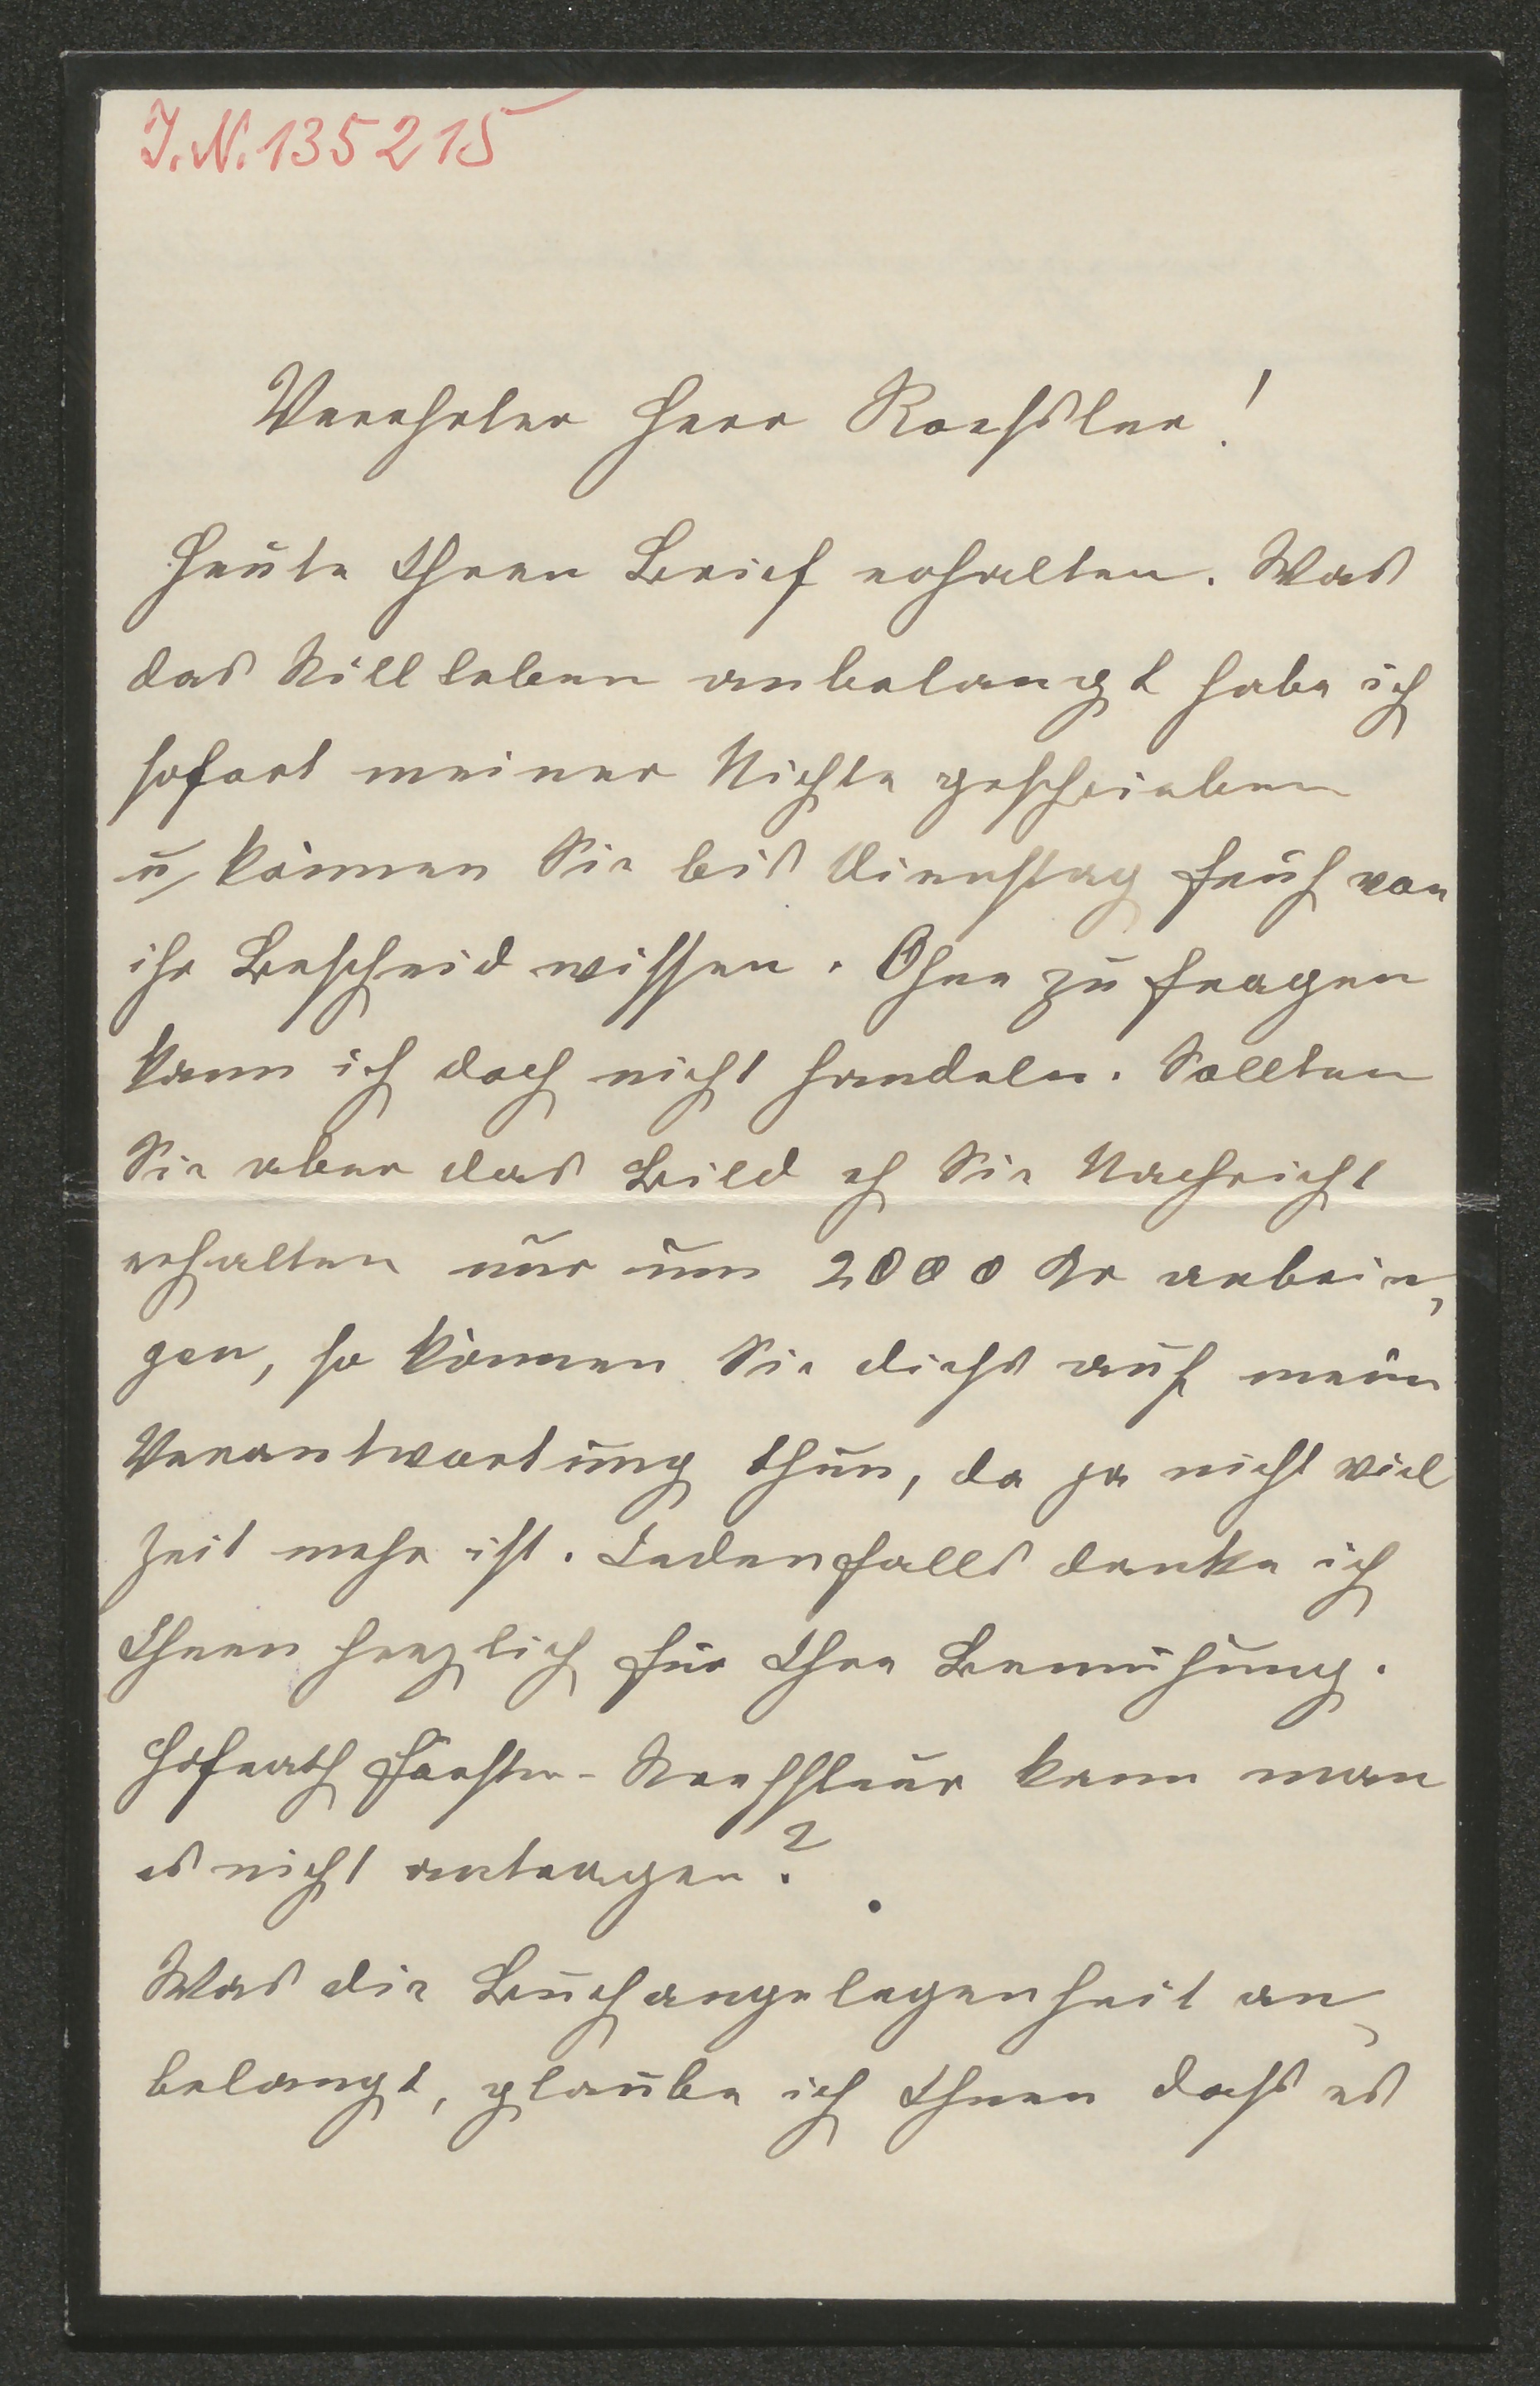 J.N. 135215
Verehrter Herr Roessler!
Heute Ihren Brief erhalten. Was
das Stillleben anbelangt habe ich
sofort meiner Nichte geschrieben
u können Sie bis Dienstag früh von
ihr Bescheid wissen. Ohne zu fragen
kann ich doch nicht handeln. Sollten
Sie aber das Bild eh Sie Nachricht
erhalten nur um 2000 Kr anbrin,
gen, so können Sie dieß auf meine
Verantwortung thun, da ja nicht viel
Zeit mehr ist. Jedenfalls danke ich
Ihnen herzlich für Ihre Bemühung.
Hofrath Förster-Streffleur kann man
es nicht antragen?
Was die Buchangelegenheit an,
belangt, glaube ich Ihnen daß es